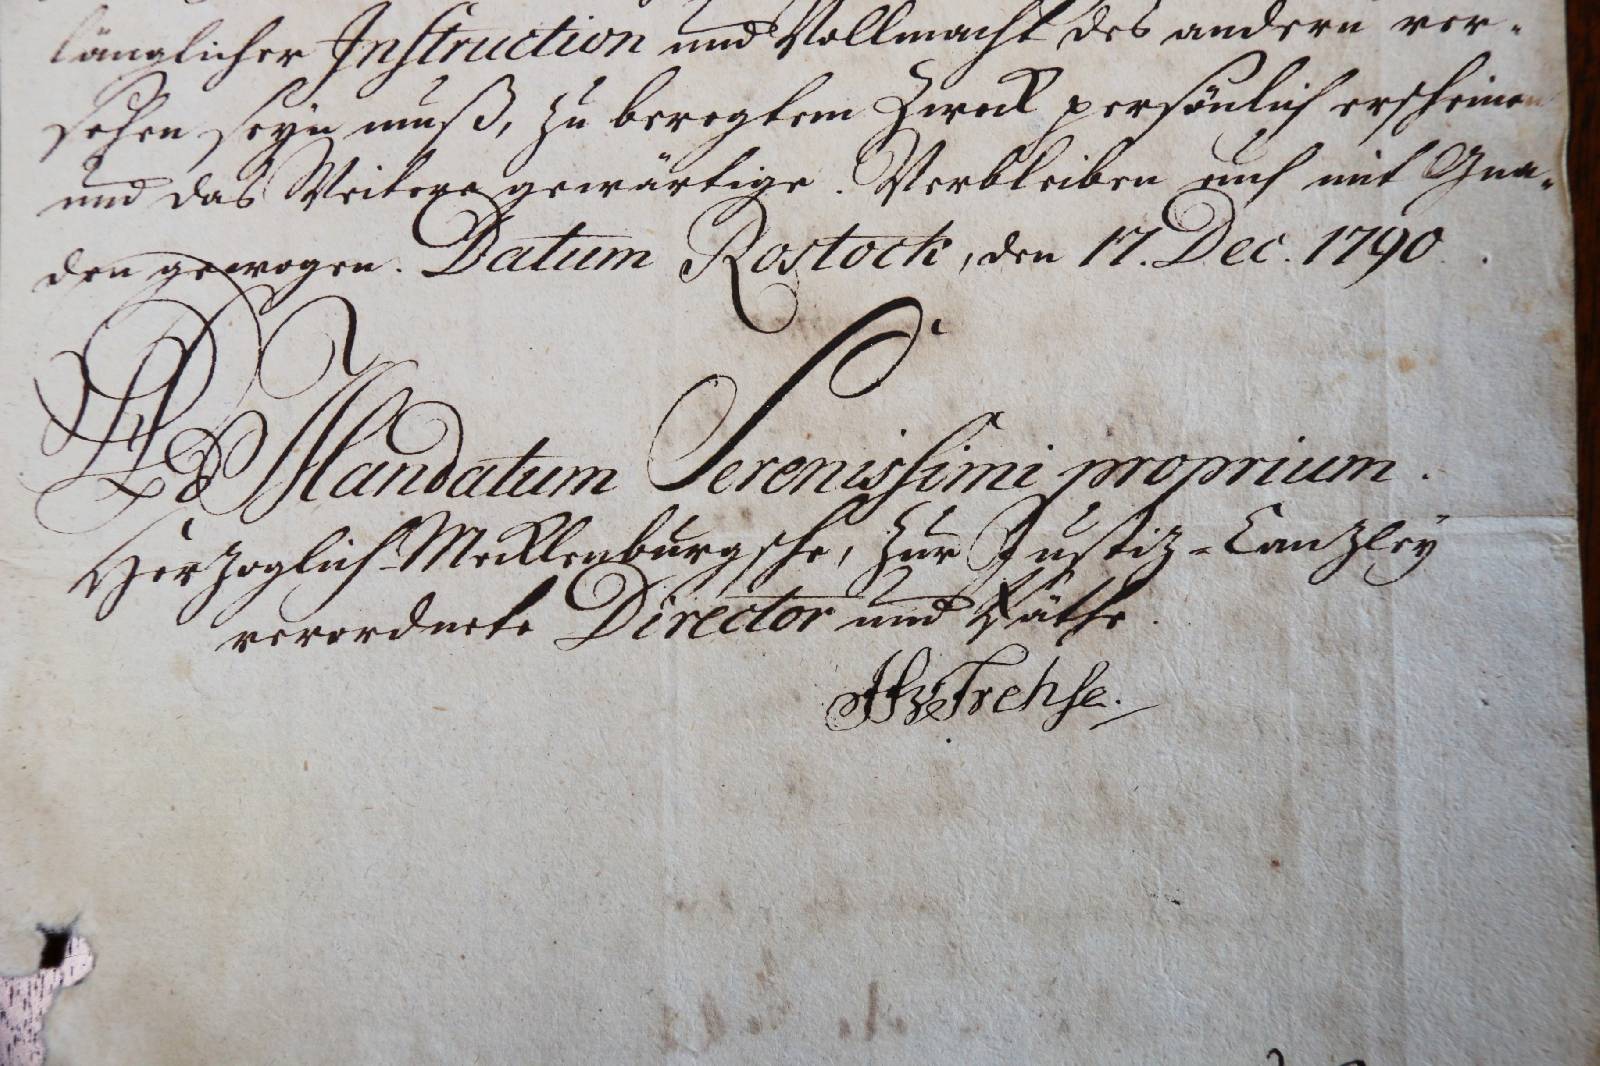 länglicher Instruction und Vollmacht des andern ver-
sehen seyn muß, zu beregtem Zweck persönlich erscheinen
und das Weitere gewärtige. Verbleiben euch mit Gna-
den gewogen. Datum Rostock, den 17. Dec. 1790.
Ad Mandatum Serenissimi proprium.
Herzoglich-Mecklenburgsche, zur Justiz-Canzley
verordnete Director und Räthe.
Trehse.